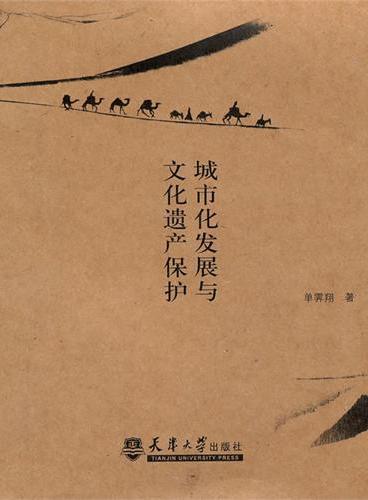 城市化发展与
文化遗产保护
单霁翔 著
天津大学出版社
TIANJIN UNIVERSITY PRESS